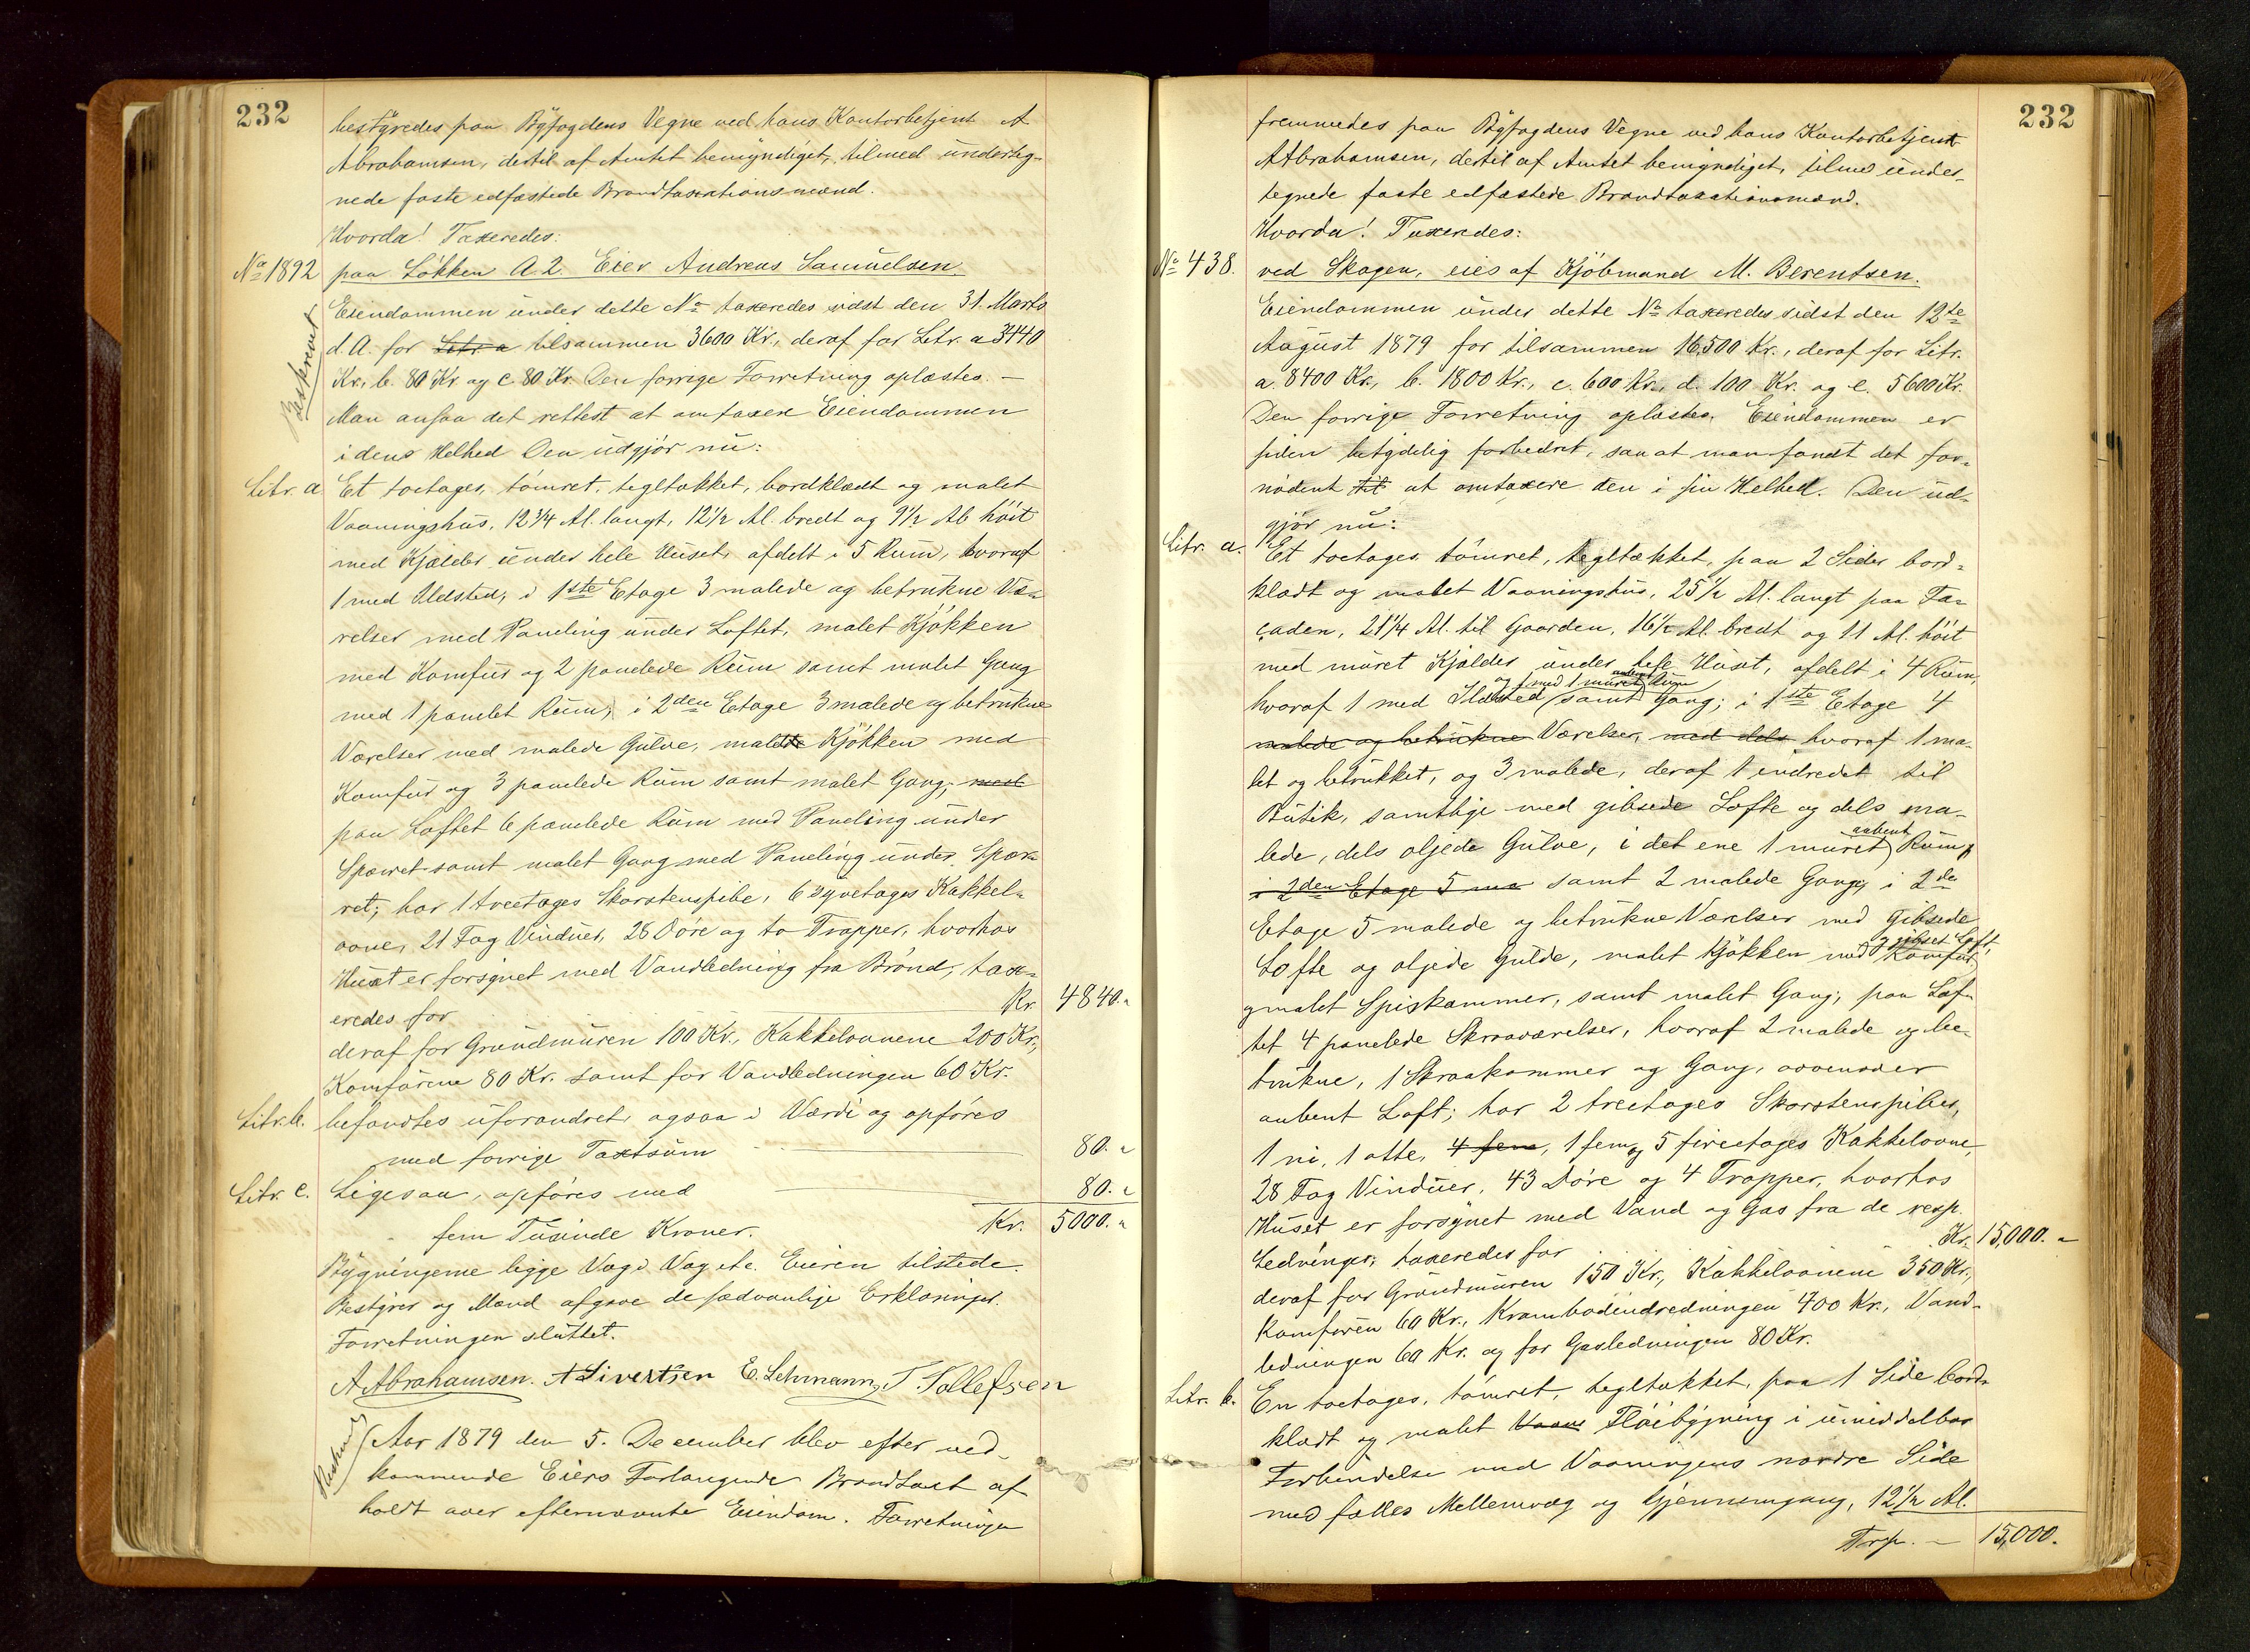 232
bestyredes paa Byfogdens Vegne ved hans Kontorbetjent A
Abrahamsen, dertil af Amtet bemyndiget, tilmed underteg-
nede faste edfæstede Brandtaxationsmænd.
Hvorda! Taxeredes:
No 1892 paa Løkken A. 2. Eier Andreas Samuelsen.
Beskrevet
Eiendommen under dette No taxeredes sidst den 31. Marts
d. A. for Litr. a tilsammen 3600 Kr., deraf for Litr. a 3440
Kr., b. 80 Kr. og c. 80 Kr. Den forrige Forretning oplæstes. —
Man ansaa det rettest at omtaxere Eiendommen
i dens Helhed Den udgjør nu:
Litr. a Et toetages, tømret, tegltækket, bordklædt og malet
Vaaningshus, 12 3/4 Al. langt, 12 1/2 Al. bredt og 9 1/2 Al. høit
med Kjælder under hele Huset, afdelt i 5 Rum, hvoraf
1 med Ildsted, i 1ste Etage 3 malede og betrukne Væ-
relser med Paneling under Loftet, malet Kjøkken
med Komfur og 2 panelede Rum samt malet Gang
med 1 panelet Rum; i 2den Etage 3 malede og betrukne
Værelser med malede Gulve, malet Kjøkken med
Komfur og 3 panelede Rum samt malet Gang;
paa Loftet 6 panelede Rum med Paneling under
Sparret samt malet Gang med Paneling under Spær-
ret; har 1 treetages Skorstenspibe, 6 syvetages Kakkel-
ovne, 21 Fag Vinduer, 28 Døre og to Trapper, hvorhos
Huset er forsynet med Vandledning fra Brønd, tax-
eredes for Kr. 4840.„
deraf for Grundmuren 100 Kr., Kakkelovnene 200 Kr.,
Komfurene 80 Kr. samt for Vandledningen 60 Kr.
Litr. b. befandtes uforandret, ogsaa i Værdi og opføres
med forrige Taxtsum 80.„
Litr. c. Ligesaa, opføres med 80.„
fem Tusinde Kroner. Kr. 5000.„
Bygningerne ligge Væg i Væg etc. Eieren tilstede.
Bestyrer og Mænd afgave de sædvanlige Erklæringer.
Forretningen sluttet.
A Abrahamsen. A Sivertsen E. Lehmann, T. Tollefsen
Aar 1879 den 5. December blev efter ved-
kommende Eiers Forlangende Brandtaxt af
holdt over efternævnte Eiendom. Forretningen
232
fremmedes paa Byfogdens Vegne ved hans Kontorbetjent
A Abrahamsen, dertil af Amtet bemyndiget, tilmed under-
tegnede faste edfæstede Brandtaxationsmænd.
Hvorda! Taxeredes:
No 438. ved Skagen, eies af Kjøbmand M. Berentsen.
Eiendommen under dette No taxeredes sidst den 12te
August 1879 for tilsammen 16,500 Kr., deraf for Litr.
a. 8400 Kr., b. 1800 Kr., c. 600 Kr., d. 100 Kr. og e. 5600 Kr.
Den forrige Forretning oplæstes. Eiendommen er
siden betydelig forbedret, saa at man fandt det for-
nødent til at omtaxere den i sin Helhed. Den ud-
gjør nu:
Litr. a. Et toetages tømret, tegltækket, paa 2 Sider bord-
klædt og malet Vaaningshus, 25 1/2 Al. langt paa Fa-
çaden, 21 1/4 Al. til Gaarden, 16 1/2 Al. bredt og 11 Al. høit
med muret Kjælder under hele Huset, afdelt i 4 Rum,
og 1 med 1 muret Rum
hvoraf 1 med Ildsted samt Gang; i 1ste Etage 4
malede og betrukne Værelser, med dels hvoraf 1 ma-
let og betrukket, og 3 malede, deraf 1 indredet til
Butik, samtlige med gibsede Lofte og dels ma-
lede, dels oljede Gulve, i det ene 1 muret aabent Rum,
i 2den Etage 5 ma samt 2 malede Gange; i 2de
Etage 5 malede og betrukne Værelser med gibsede
Lofte og oljede Gulve, malet Kjøkken med Komfur og gibset Loft,
malet Spiskammer, samt malet Gang; paa Lof-
tet 4 panelede Skraaværelser, hvoraf 2 malede og be-
trukne, 1 Skraakammer og Gang, ovenover
aabent Loft; har 2 treetages Skorstenspiber,
1 ni, 1 otte, 4 fem, 1 fem og 5 fireetages Kakkelovne,
28 Fag Vinduer, 43 Døre og 4 Trapper, hvorhos
Huset er forsynet med Vand og Gas fra de resp.
Ledninger, taxeredes for Kr. 15,000.„
deraf for Grundmuren 150 Kr., Kakkelovnene 350 Kr.,
Komfuren 60 Kr., Krambodindredningen 400 Kr., Vand-
ledningen 60 Kr. og for Gasledningen 80 Kr.
Litr. b. En toetages, tømret, tegltækket, paa 1 Side bord-
klædt og malet Vaan Fløibygning i umiddelbar
Forbindelse med Vaaningens nordre Side
med fælles Mellemvæg og Gjennemgang, 12 1/2 Al.
Trsp. — 15,000.